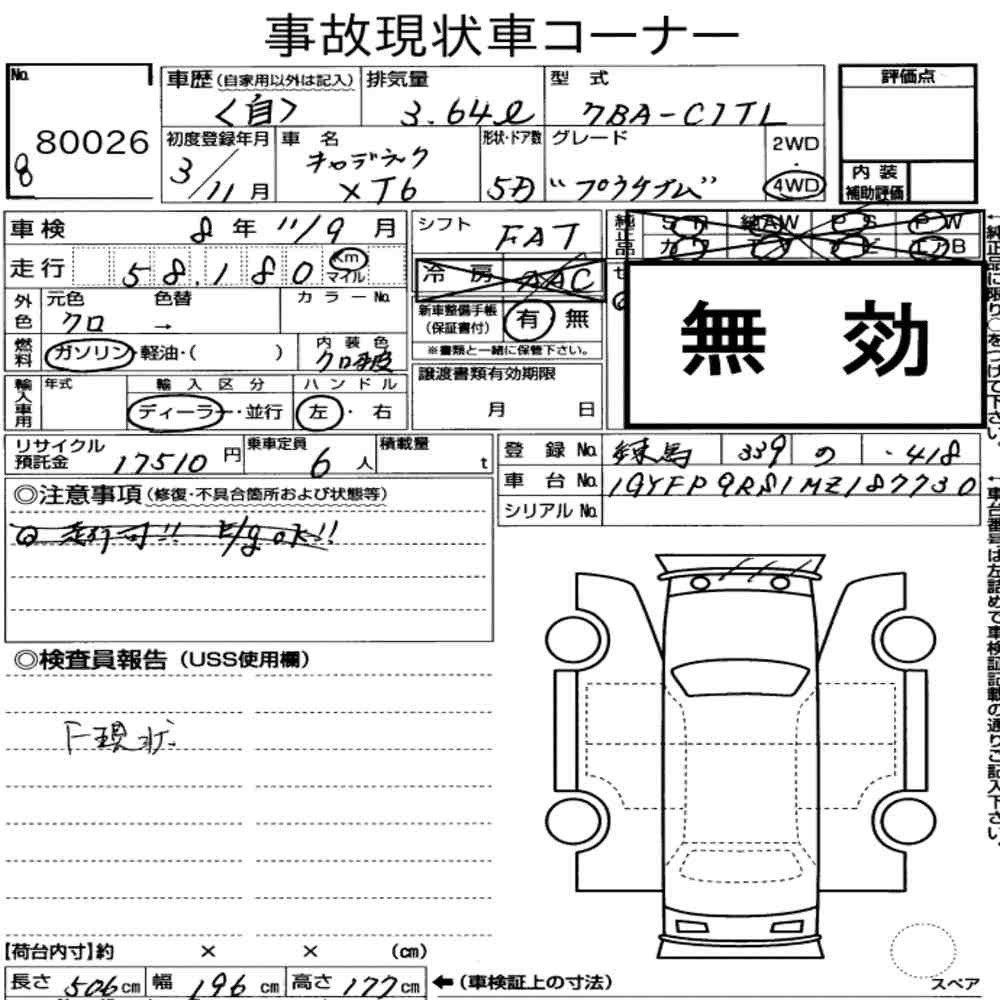 事故現状車コーナー
No. 80026
8
車歴(自家用以外は記入) <自>
排気量 3.64ℓ
型式 7BA-C1TL
評価点
初度登録年月 3/11月
車名 キャデラック XT6
形状・ドア数 5D
グレード "プラチナム"
2WD・4WD
内装補助評価
車検 8年11/9月
シフト FAT
純正品 SR 純AW PS PW
カワ TV ナビ エアB
走行 58,180 Km マイル
冷房 AAC
無効
外色 元色 クロ 色替 →
カラーNo.
新車整備手帳(保証書付) 有 無
※書類と一緒に保管下さい。
燃料 ガソリン・軽油・( )
内装色 クロ革
輸入車用 年式
輸入区分 ディーラー・並行
ハンドル 左・右
譲渡書類有効期限
月 日
リサイクル預託金 17510円
乗車定員 6人
積載量 t
登録No. 練馬 339 の ・418
車台No. 1GYFP9RS1MZ187730
シリアルNo.
◎注意事項(修復・不具合箇所および状態等)
走行可!! E/g OK!!
◎検査員報告(USS使用欄)
F現状
【荷台内寸】約 × × (cm)
長さ 506cm 幅 196cm 高さ 177cm ←(車検証上の寸法)
スペア
←純正品に限り○をつけて下さい。
←車台番号は左詰めで車検証記載の通りご記入下さい。